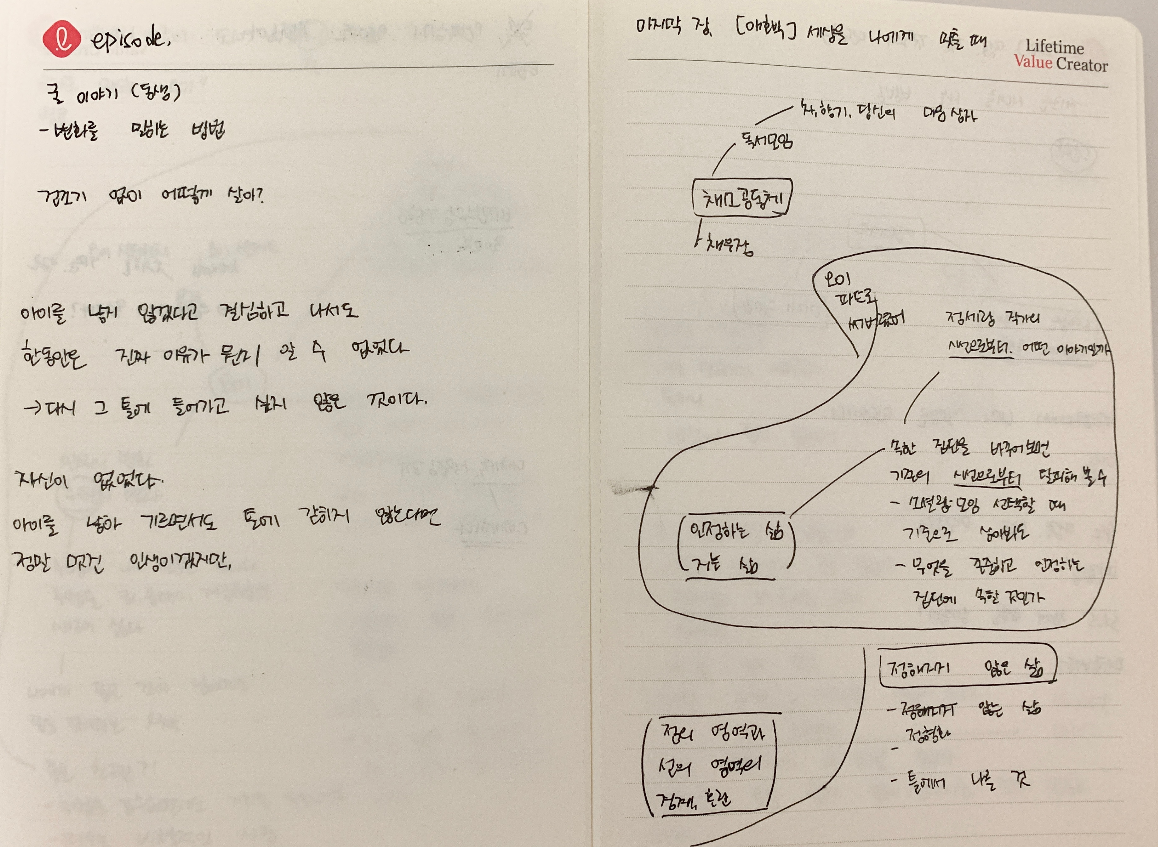 episode.
굴 이야기 (동생)
- 변화를 방법
건조기 없이 어떻게 살아?
아이를 낳지 않겠다고 결심하고 나서도
한동안은 진짜 이유가 뭔지 알 수 없었다
→ 다시 그 틀에 들어가고 싶지 않은 것이다.
자신이 없었다.
아이를 낳아 기르면서도 틀에 갇히지 않는다면
정말 멋진 인생이겠지만,
마지막 장. [애호박] 세상을 나에게 맞출 때
Lifetime
Value Creator
차, 향기, 당신의 마음 상자
독서모임
채소공동체
채무장
오이
파프로
정세랑 작가의
시선으로부터. 어떤 이야기일까
속한 집단을 바꾸어보면
기존의 시선으로부터 탈피해 볼 수
- 모임 선택할 때
기준으로 삼아봐도
- 무엇을 존중하고 인정하는
집단에 속할 것인가
인정하는 삶
지는 삶
정해지지 않은 삶
- 정해지지 않는 삶
- 정형화
- 틀에서 나올 것
점의 영역과
선의 영역의
경계, 혼란